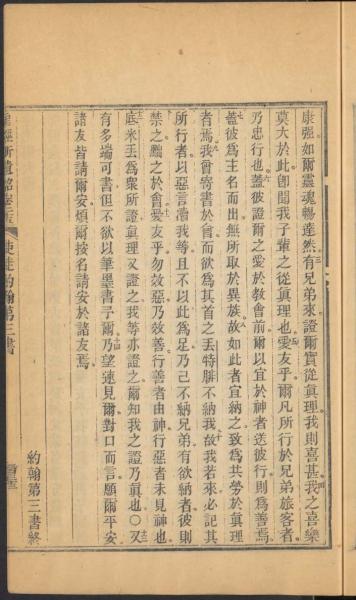 康强如爾靈魂暢達然有兄弟來證爾實從眞理我則喜甚我之喜樂
莫大於此卽聞我子輩之從眞理也愛友乎爾凡所行於兄弟旅客者
乃忠行也蓋彼證爾之愛於教會前爾以宜於神者送彼行則爲善焉
蓋彼爲主名而出無所取於異族故如此者宜納之致爲共勞於眞理
者焉我曾寄書於會而欲爲其首之丟特腓不納我故我若來必記其
所行者以惡言瀆我等且不以此爲足乃己不納兄弟有欲納者彼則
禁之黜之於會愛友乎勿效惡乃效善行善者由神行惡者未見神也
底米丟爲衆所證眞理又證之我等亦證之爾知我之證乃眞也○又
有多端可書但不欲以筆墨書于爾乃望速見爾對口而言願爾平安
諸友皆請爾安煩爾按名請安於諸友焉
約翰第三書終
使徒約翰第三書